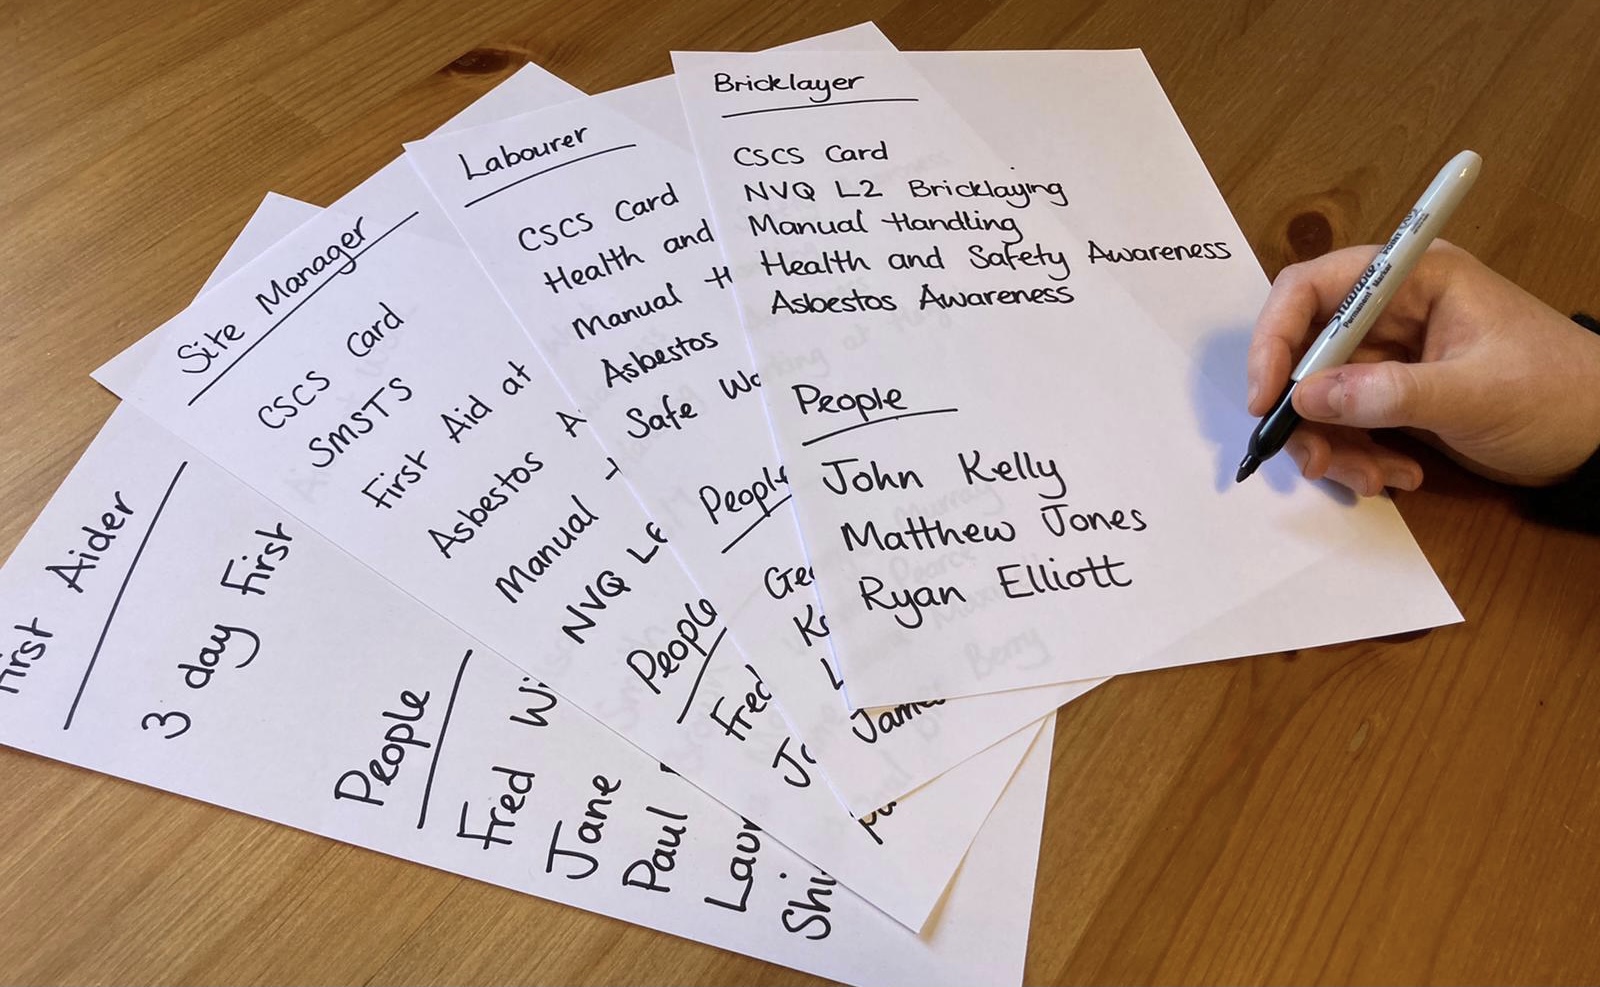 Bricklayer
CSCS Card
NVQ L2 Bricklaying
Manual Handling
Health and Safety Awareness
Asbestos Awareness
People
John Kelly
Matthew Jones
Ryan Elliott
Labourer
CSCS Card
Health and
Manual
Asbestos
Safe
People
James
Site Manager
CSCS Card
SMSTS
First Aid at
Asbestos
Manual
NVQ
People
Fred
First Aider
3 day First
People
Fred
Jane
Paul
Permanent Marker